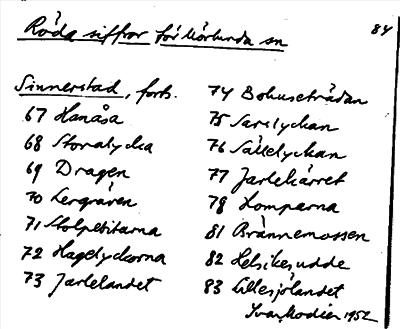 Röda siffror för Körlunda sn
84
Sinnerstad, forts.
67 Hanåsa
68 Storalycka
69 Dragen
70 Lergraven
71 Stolpebitarna
72 Hagelyckorna
73 Jarlelandet
74 Bohusetrådan
75 Sarslyckan
76 Sällelyckan
77 Jarlekärret
78 Homparna
81 Brännemossen
82 Helsikesudde
83 Lillesjölandet
Ivar Modéer 1952